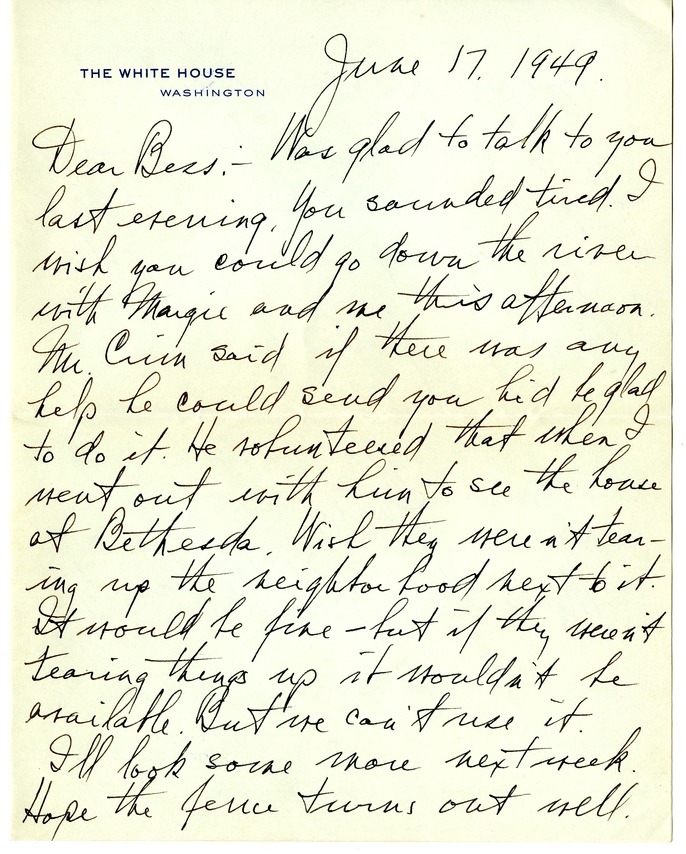 THE WHITE HOUSE
WASHINGTON
June 17, 1949.
Dear Bess:- Was glad to talk to you
last evening. You sounded tired. I
wish you could go down the river
with Margie and me this afternoon.
Mr. Crim said if there was any
help he could send you he'd be glad
to do it. He volunteered that when I
went out with him to see the house
at Bethesda. Wish they weren't tear-
ing up the neighborhood next to it.
It would be fine - but if they weren't
tearing things up it wouldn't be
available. But we can't use it.
I'll look some more next week.
Hope the fence turns out well.